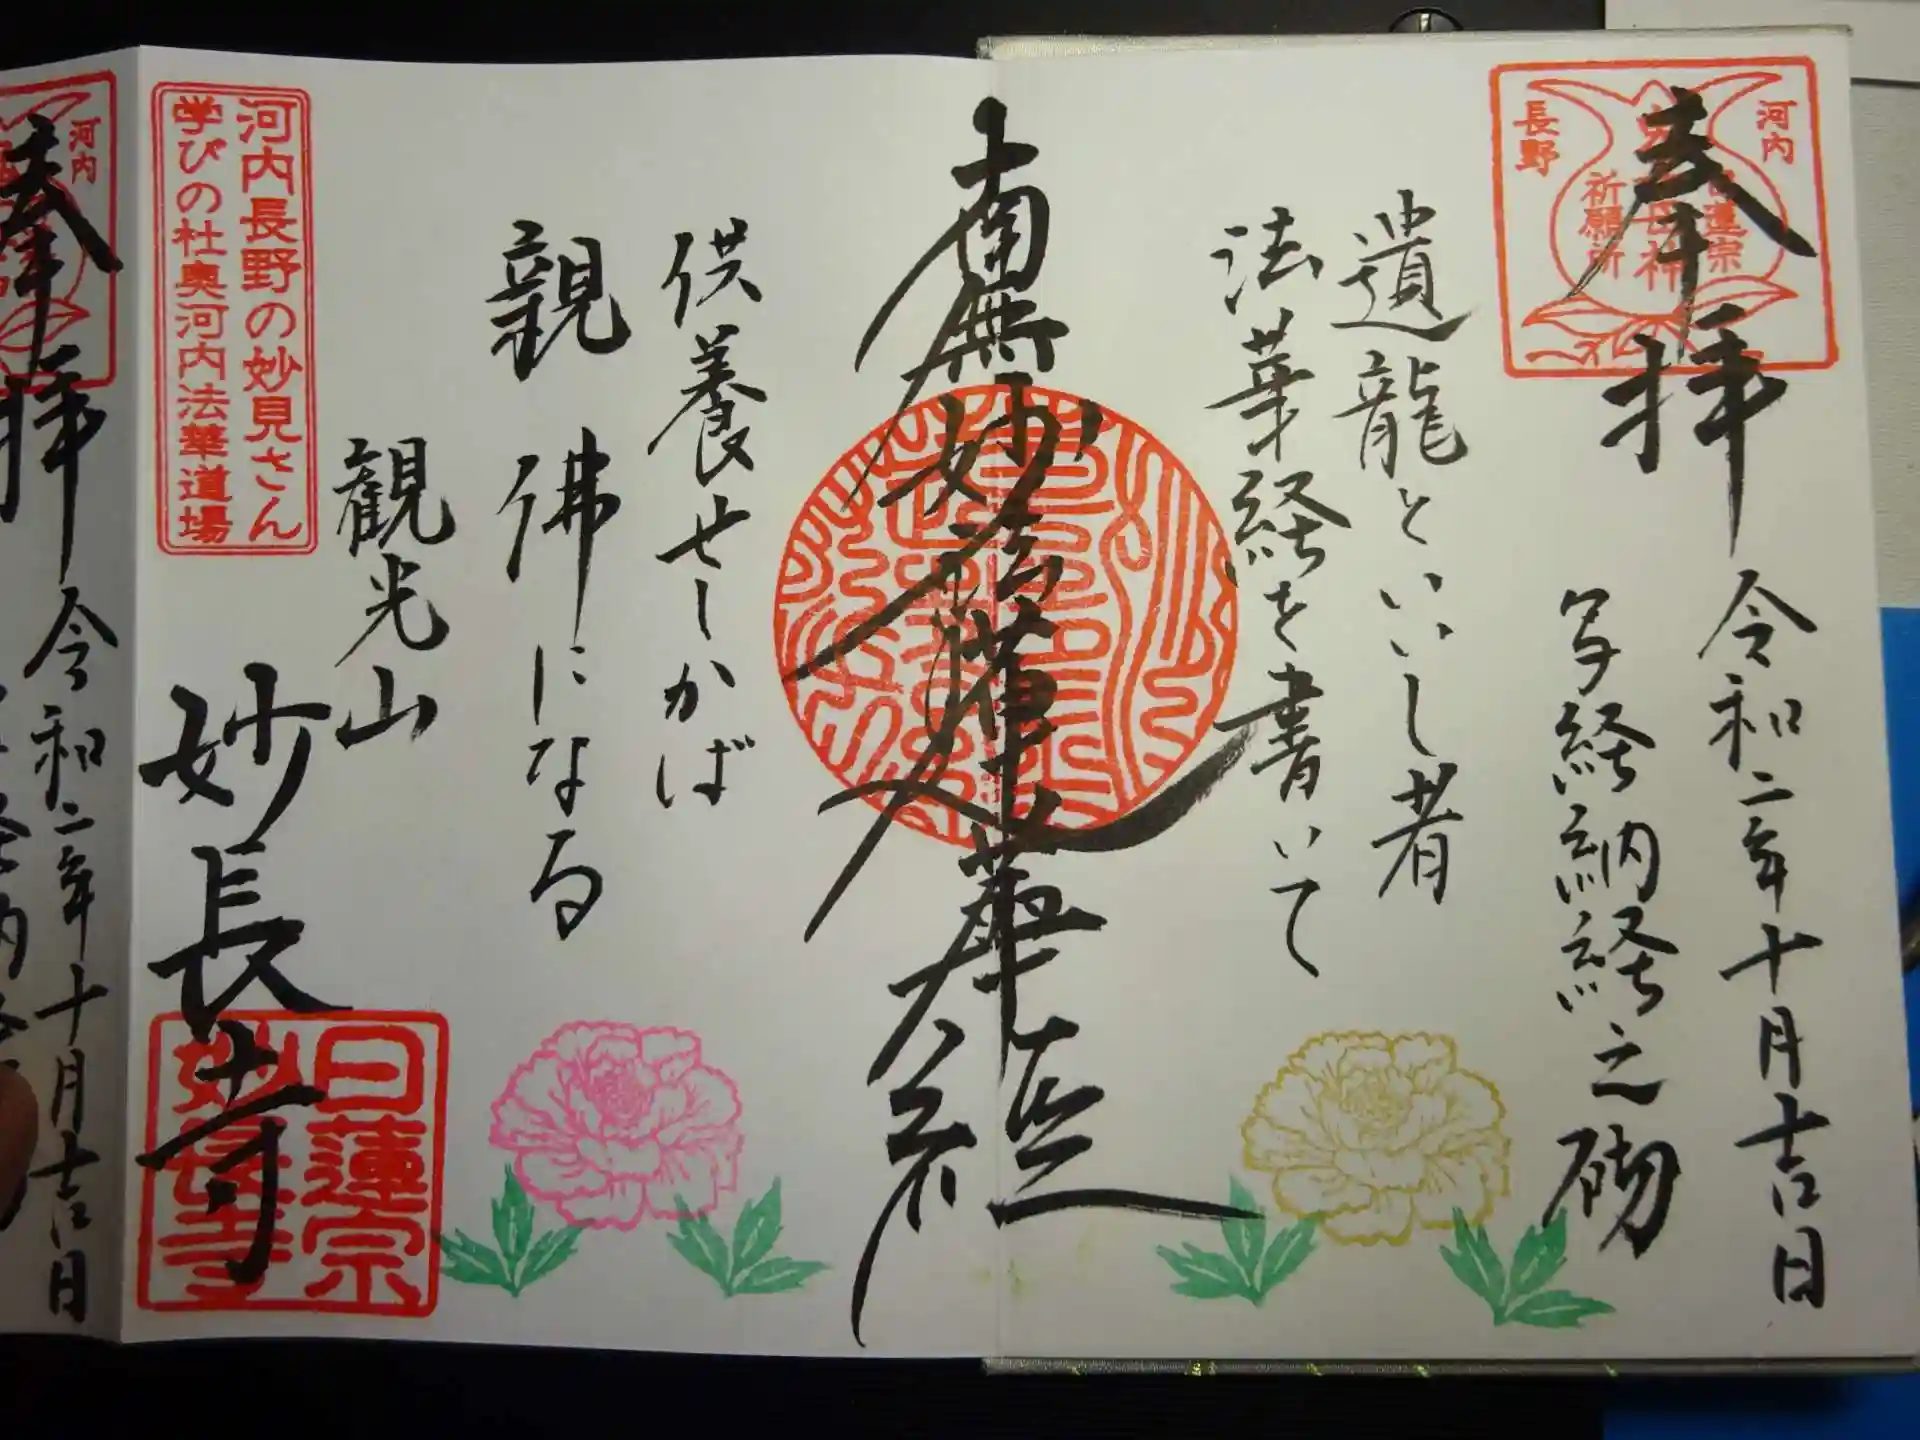 奉拝
令和二年十月吉日
写経納経之砌
河内
長野
日蓮宗
鬼子母神
祈願所
遺龍といいし者
法華経を書いて
南無妙法蓮華経
供養せしかば
親佛になる
観光山
妙長寺
河内長野の妙見さん
学びの杜奥河内法華道場
日蓮宗
妙長寺
奉拝
令和二年十月吉日
河内